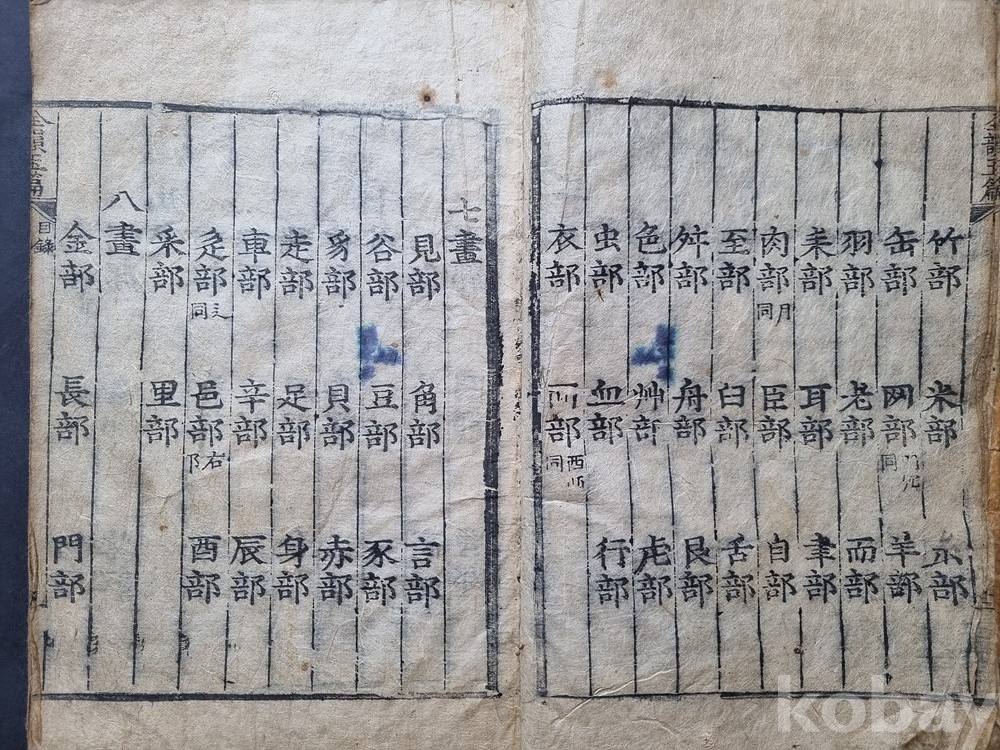 全韻玉篇
竹部 米部 糸部
缶部 网部 同 羊部
羽部 老部 而部
耒部 耳部 聿部
肉部 月同 臣部 自部
至部 臼部 舌部
舛部 舟部 艮部
色部 艸部 虍部
虫部 血部 行部
衣部 襾部 西同
七畫
見部 角部 言部
谷部 豆部 豕部
豸部 貝部 赤部
走部 足部 身部
車部 辛部 辰部
辵部 辶同 邑部 右阝 酉部
釆部 里部
八畫
金部 長部 門部
全韻玉篇 目錄
kobay